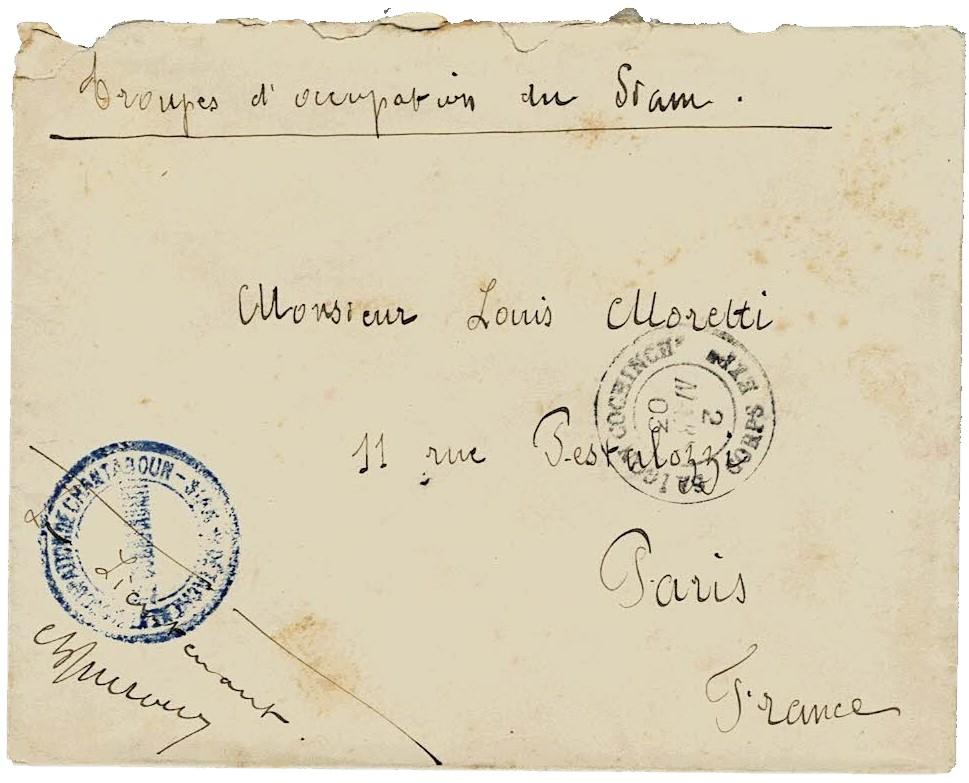 Troupes d'occupation du Siam.
Monsieur Louis Moretti
11 rue Pestalozzi
Paris
France
CORPS
SAIGON COCHINCH
2
03
DE CHANTABOUN - SIAM
Lieutenant